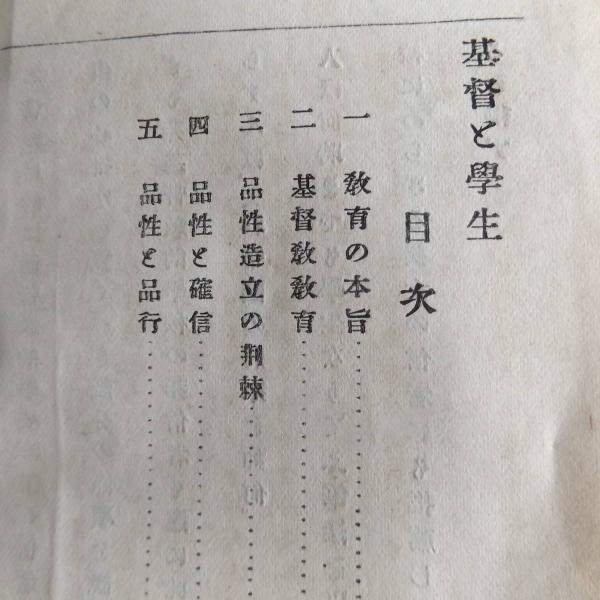 基督と學生
目次
一 敎育の本旨
二 基督敎敎育
三 品性造立の荆棘
四 品性と確信
五 品性と品行